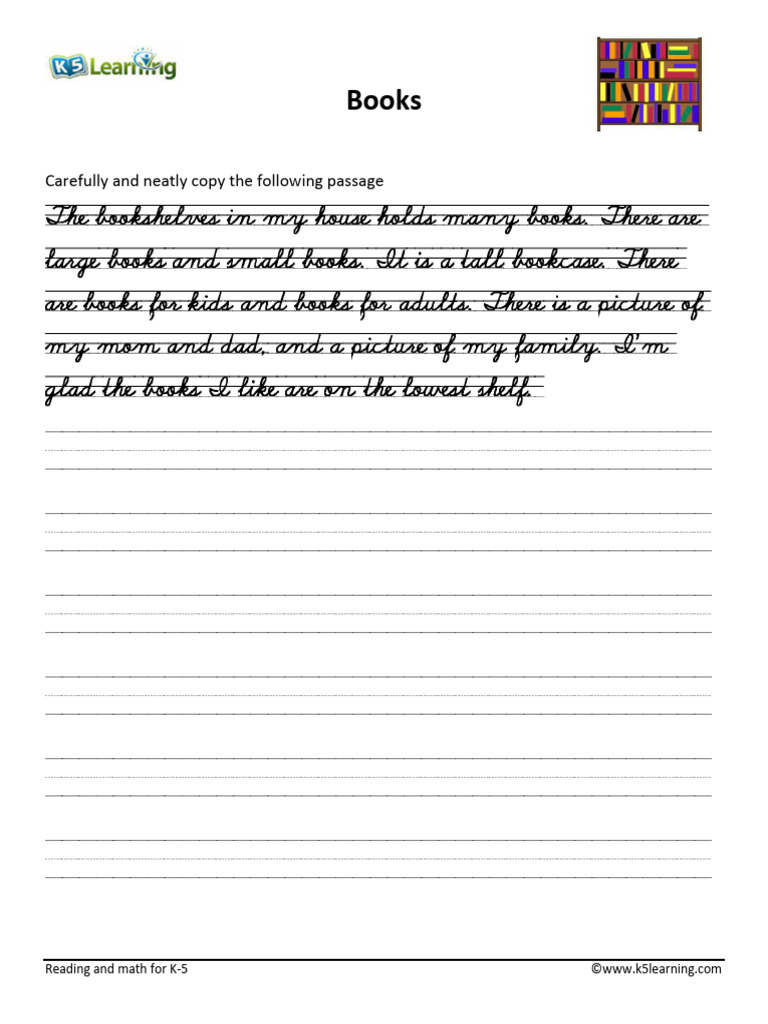 K5 Learning
Books
Carefully and neatly copy the following passage
The bookshelves in my house holds many books. There are
large books and small books. It is a tall bookcase. There
are books for kids and books for adults. There is a picture of
my mom and dad, and a picture of my family. I'm
glad the books I like are on the lowest shelf.
Reading and math for K-5
©www.k5learning.com